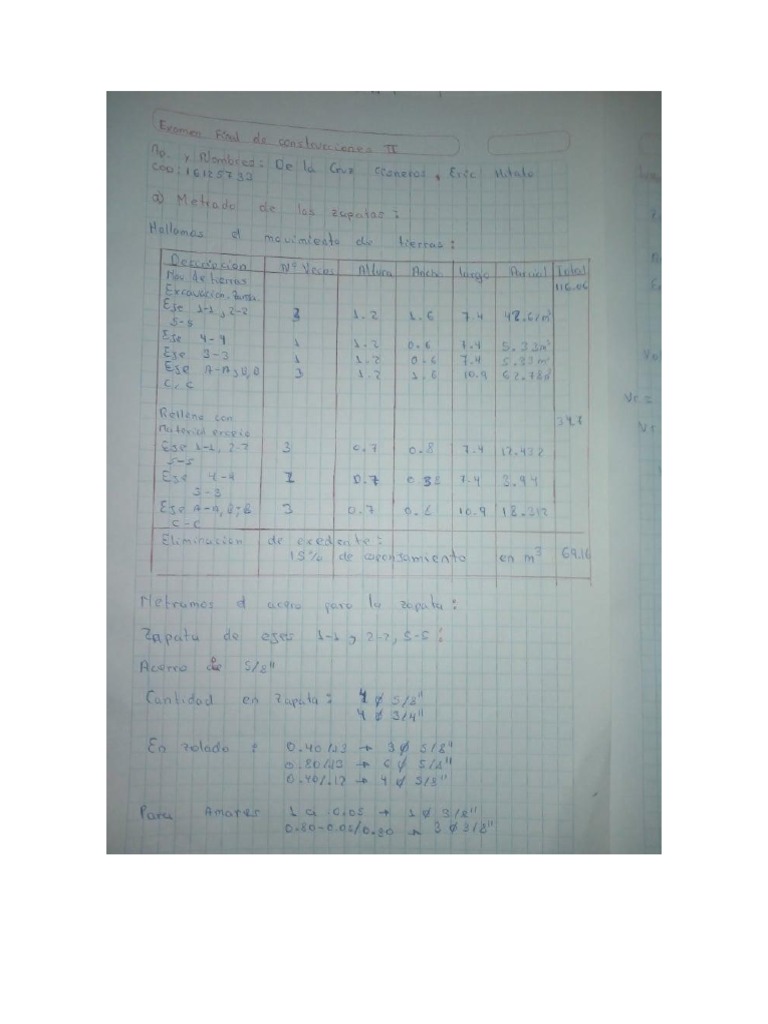 Examen Final de construcciones II
Ap. y Nombres: De la Cruz Cisneros, Eric
COD: 16125733
a) Metrado de las zapatas:
Hallamos el movimiento de tierras:
Descripcion Nº Veces Altura Ancho largo Parcial Total
Mov. de tierras 116.06
Excavacion
Eje 1-1, 2-2 3 1.2 1.6 7.4 42.6 m³
5-5
Eje 4-4 1 1.2 0.6 7.4 5.33 m³
Eje 3-3 1 1.2 0.6 7.4 5.33 m³
Eje A-A, B,B 3 1.2 1.6 10.9 62.78 m³
C, C
Relleno con
Material propio
Eje 1-1, 2-2 3 0.7 0.8 7.4 12.432
5-5
Eje 4-4 0.7 0.38 7.4 3.94
3-3
Eje A-A, B-B 3 0.7 10.9 18.312
C-C
Eliminacion de exedente:
15% de esponjamiento en m³ 69.16
Metramos el acero para la zapata:
Zapata de ejes 1-1, 2-2, 5-5:
Acero de 5/8"
Cantidad en zapata: 4 ø 5/8"
4 ø 3/4"
En volado: 0.40/.13 → 3 ø 5/8"
0.80/.13 → 6 ø 5/8"
0.40/.12 → 4 ø 5/8"
Para 1 a 0.05 → 1 ø 3/8"
0.80-0.05/0.20 → 3 ø 3/8"